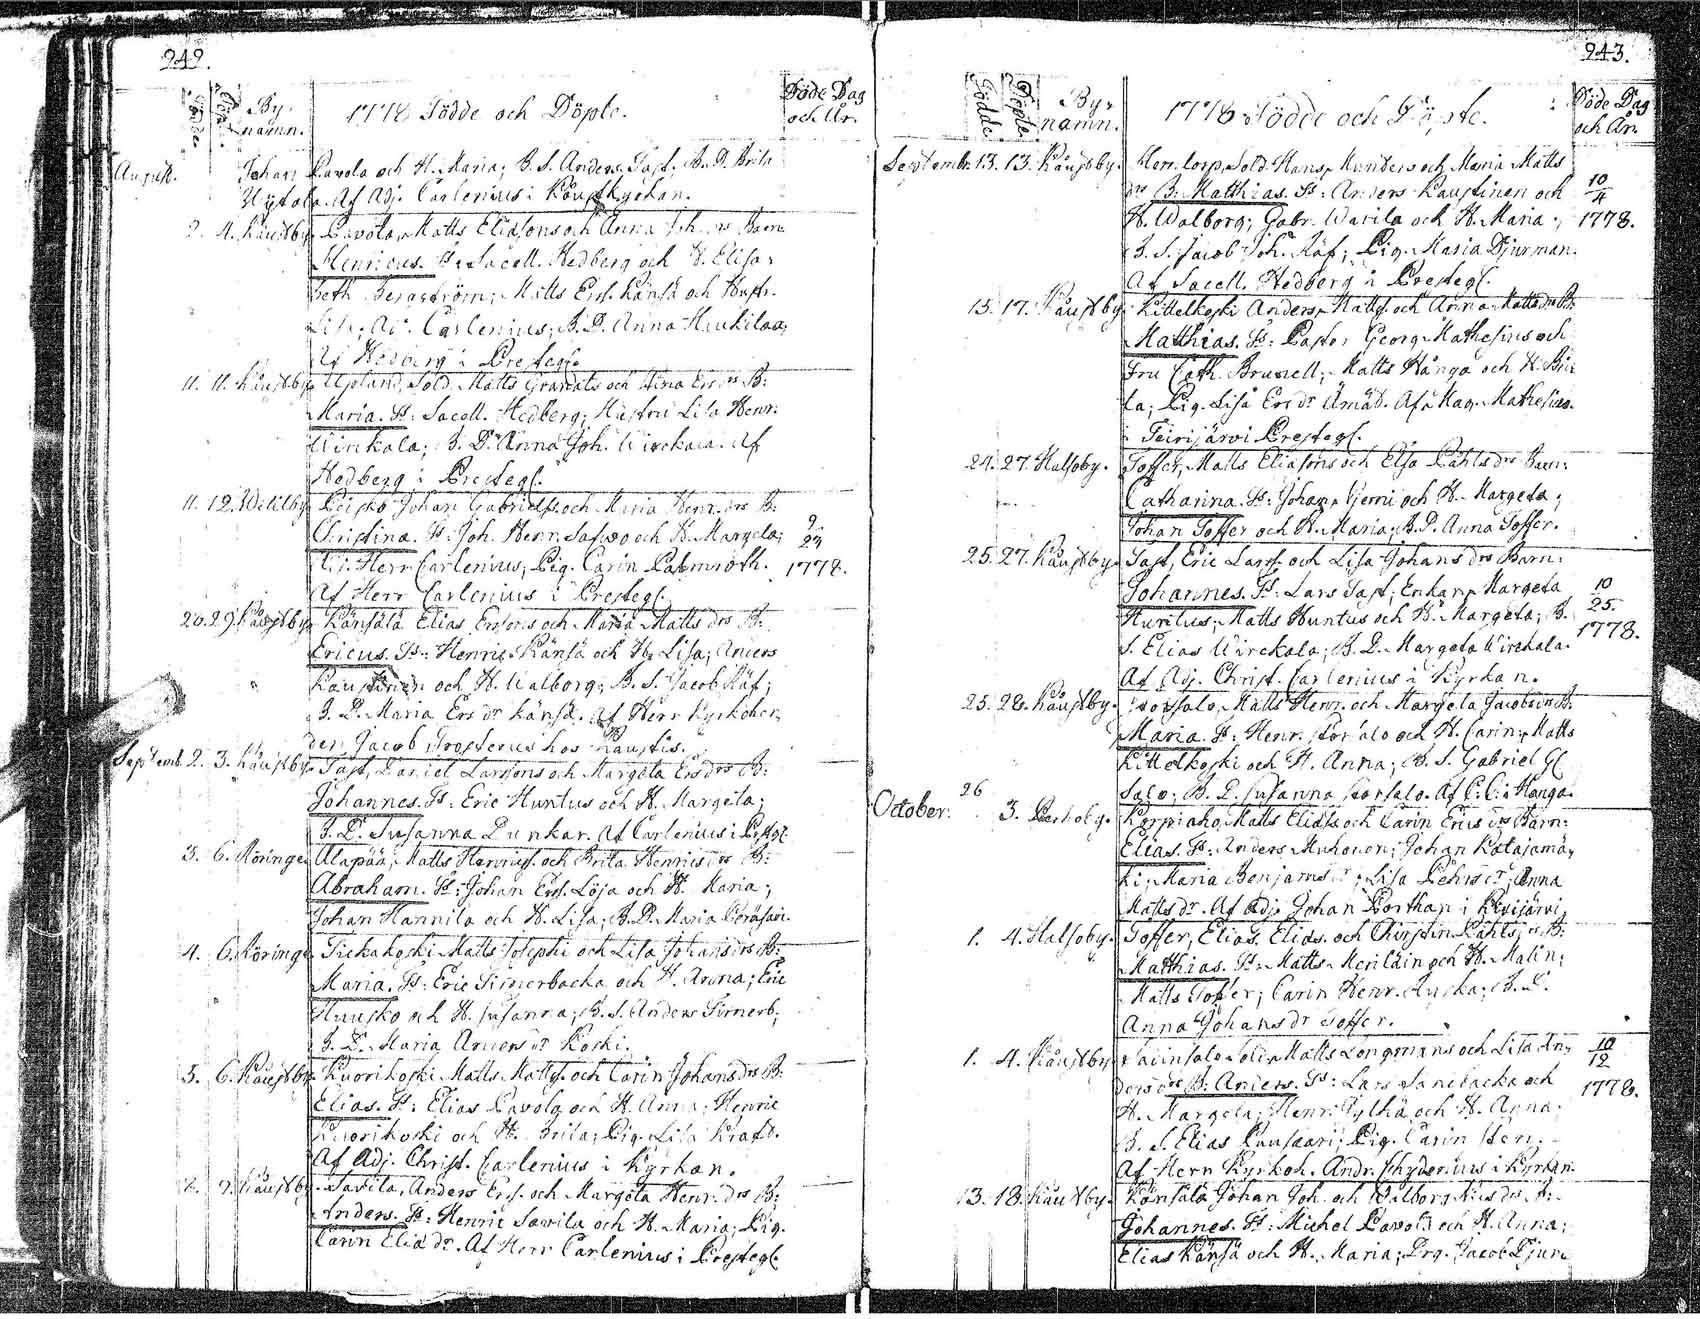 242.
Födde
Döpte
By-
namn.
1778 Födde och Döpte.
Döde Dag
och År.
August. Johan Pavola och H. Maria; B. S. Anders Tast; B. D. Brita
Uytola. Af Adj. Carlenius i Kaustkyrkan.
2. 4. Kaustby. Pavola, Matts Eliæsons och Anna Joh. drs Barn
Henricus. Ts: Sacell. Hedberg och H. Elisa-
beth Bergström; Matts Ers. Känsä och Hustr.
Lisa; Carlenius; B. D. Anna Huukilas;
Af Hedberg i Presteg.
11. 11. Kaustby. Upland, Sold. Matts Granats och Stina Ers drs B:
Maria. Ts: Sacell. Hedberg; Hustru Lisa Henr:
Wirckala; B. D. Anna Joh. Wirckala. Af
Hedberg i Presteg.
11. 12. Johan Gabriels. och Maria Henr. drs B:
Christina. Ts: Joh. Henr. och H. Margeta;
Herr Carlenius; Pig. Carin Palmroth.
Af Herr Carlenius i Presteg.
9
23
1778.
29. Kaustby. Känsälä Elias Ersons och Maria Matts drs B:
Ericus. Ts: Henric Känsä och H. Lisa; Anders
Kaustinen och H. Walborg; B. S. Jacob Räf;
B. D. Maria Ers dr Känsä. Af Herr Kyrkoher-
den Jacob Trosterus hos Kaustis.
Septemb. 2. 3. Kaustby. Tast, Daniel Larssons och Margeta Ers drs B:
Johannes. Ts: Eric Huntus och H. Margeta;
B. D. Susanna Dunkar. Af Carlenius i Prsteg.
3. 6. Röringe. Alapää, Matts Henrics. och Brita Henrics drs B:
Abraham. Ts: Johan Ers. Löja och H. Maria;
Johan Hannila och H. Lisa; B. D. Maria
4. 6. Röringe. Tickakoski Matts Josephs. och Lisa Johans drs B:
Maria. Ts: Eric Timerbacka och H. Anna; Eric
Huusko och H. Susanna; B. S. Anders Timerb;
B. D. Maria Anders dr Koski.
5. 6. Kaustby. Kuorikoski Matts Matts. och Carin Johans drs B:
Elias. Ts: Elias Pavola och H. Anna; Henric
Kuorikoski och H. Brita; Pig. Lisa Kraft.
Af Adj. Christ. Carlenius i Kyrkan.
9. Kaustby. Savila, Anders Ers. och Margeta Henr. drs B:
Anders. Ts: Henric Savila och H. Maria; Pig.
Carin Eliæ dr. Af Herr Carlenius i Prestegl.
243.
Födde.
Döpte
By-
namn.
1778 Födde och Döpte.
Döde Dag
och År.
Septembr. 13. 13. Kaustby. Herr Corp. Sold. Hans Munders och Maria Matts
drs B: Matthias. Ts: Anders Kaustinen och
H. Walborg; Gabr. Warila och H. Maria;
B. S. Jacob Joh. Räf; Pig. Maria Djurman.
Af Sacell. Hedberg i Prestegl.
10
4
1778.
15. 17. Kaustby. Kittelkoski Anders Matts. och Anna Matts drs B:
Matthias. Ts: Pastor Georg Mathesius och
Fru Cath. Brunell; Matts Hånga och H. Bri-
ta; Pig. Lisa Ers dr Åmäd. Af Mag. Mathesius
i Teirijärvi Prestegl.
24. 27. Halsoby. Toffer, Matts Eliæsons och Elsa Påhls drs Barn:
Catharina. Ts: Johan Gerni och H. Margeta;
Johan Toffer och H. Maria; B. D. Anna Toffer.
25. 27. Kaustby. Tast, Eric Larss. och Lisa Johans drs Barn:
Johannes. Ts: Lars Tast; Enkan Margeta
Huntus; Matts Huntus och H. Margeta; B.
S. Elias Wirckala; B. D. Margeta Wirckala.
Af Adj. Christ. Carlenius i Kyrkan.
10
25.
1778.
25. 28. Kaustby. Torsalo, Matts Henr. och Margeta Jacobs drs B:
Maria. Ts: Henr. Torsalo och H. Carin; Matts
Kittelkoski och H. Anna; B. S. Gabriel Gl
Salo; B. D. Susanna Torsalo. Af C. C. i Hånga.
October. 26 3. Perhoby. Korpiaho, Matts Eliæs. och Carin Erics drs Barn:
Elias. Ts: Anders Muhonen; Johan Katajamä-
ki; Maria Benjams dr; Lisa Pehrs dr; Anna
Matts dr. Af Adj. Johan Porthan i Kivijärvi.
1. 4. Halsoby. Toffer, Elias Eliæs. och Chirstin Påhls drs B:
Matthias. Ts: Matts Meriläin och H. Malin;
Matts Toffer; Carin Henr. Auska; B. D.
Anna Johans dr Toffer.
1. 4. Kaustby. Sold. Matts Longmans och Lisa An-
ders drs B: Anders. Ts: Lars Tanebacka och
H. Margeta; Henr. Pylhä och H. Anna;
B. S. Elias Puusaari; Pig. Carin Sten.
Af Herr Kyrkoh. Andr. Chydenius i Kyrkan.
10
12
1778.
13. 18. Kaustby. Känsälä Johan Joh. och Walborg Nils drs B:
Johannes. Ts: Michel Pavola och H. Anna;
Elias Känsä och H. Maria; Drg. Jacob Djur-